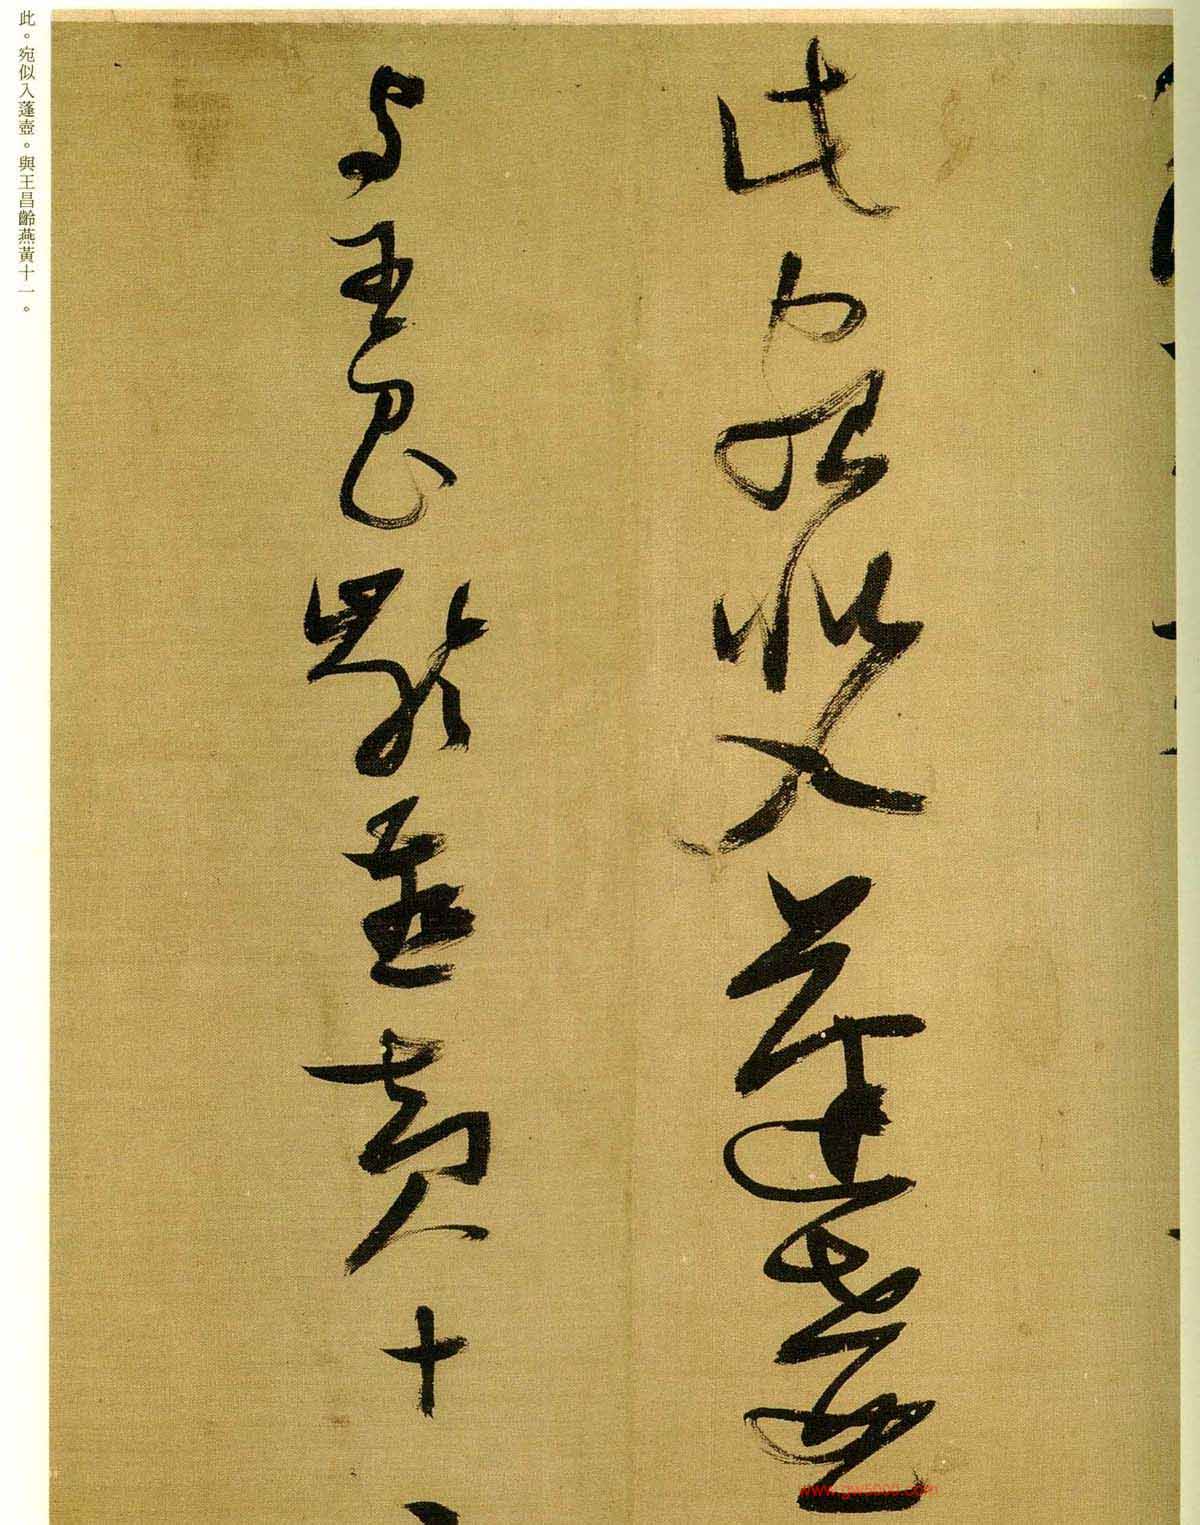 此宛似入蓬壺
與王昌齡燕黃十
此。宛似入蓬壺。與王昌齡燕黃十一。